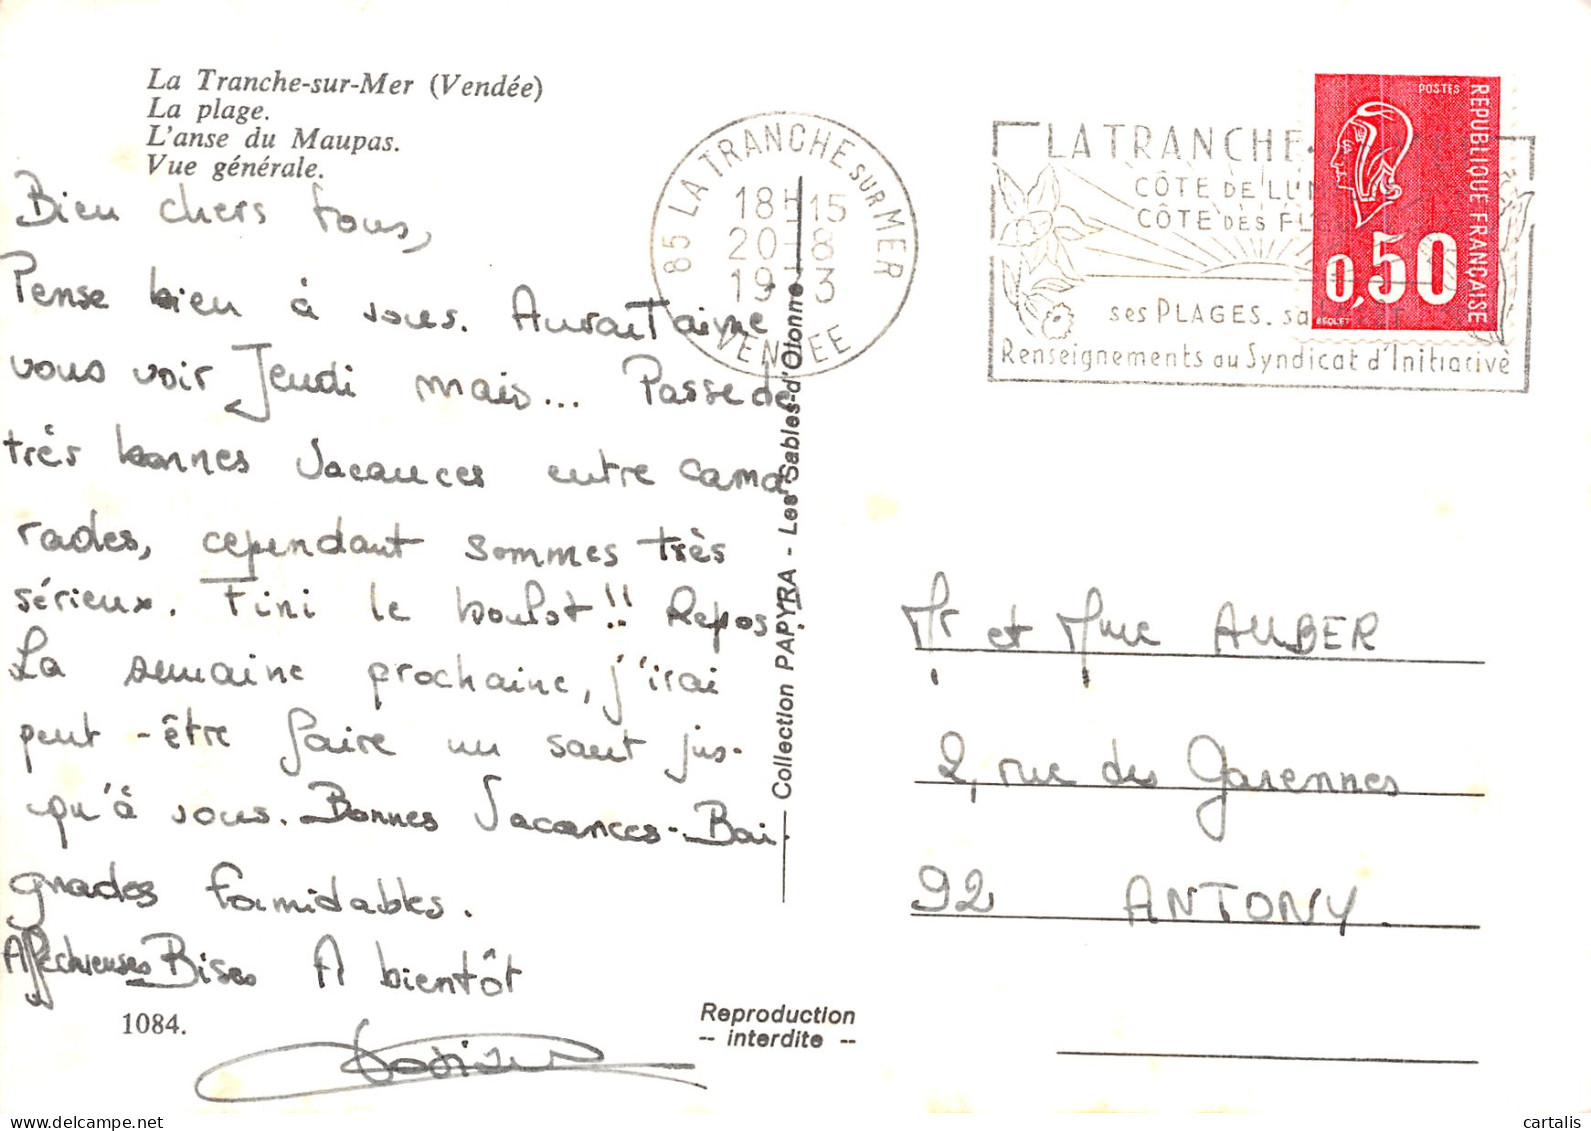 La Tranche-sur-Mer (Vendée)
La plage.
L'anse du Maupas.
Vue générale.
Bien chers tous,
Pense bien à vous. Aurait aimé
vous voir Jeudi mais... Passe de
très bonnes vacances entre cama
rades, cependant sommes très
sérieux. Fini le boulot!! Repos.
La semaine prochaine, j'irai
peut-être faire un saut jus-
qu'à vous. Bonnes Vacances - Bai
gnades formidables.
Affectueuses Bises A bientôt
1084.
Collection PAPYRA - Les Sables-d'Olonne
Reproduction
-- interdite --
85 LA TRANCHE SUR MER
18H15
20-8
1973
VENDEE
LA TRANCHE
CÔTE DE LUM
CÔTE DES FL
ses PLAGES. sa
Renseignements au Syndicat d'Initiative
POSTES
REPUBLIQUE FRANÇAISE
0,50
BEQUET
Mr et Mme AUBER
2, rue des Garennes
92 ANTONY.
cartalis
delcampe.net